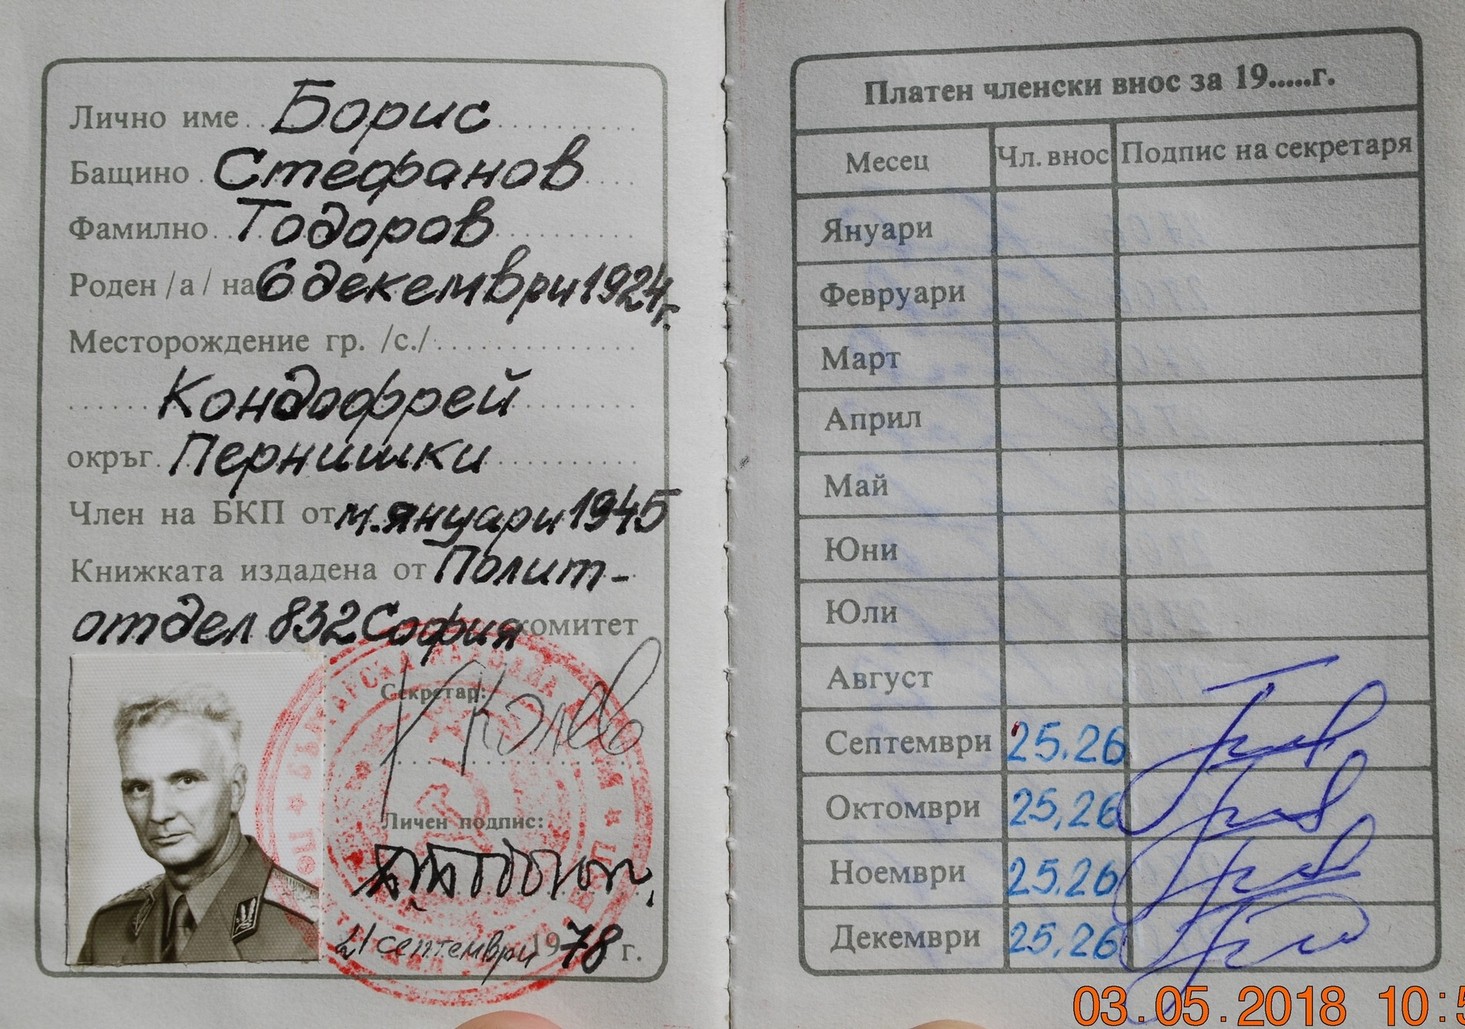 Лично име Борис
Бащино Стефанов
Фамилно Тодоров
Роден /а/ на 6 декември 1924 г.
Месторождение гр. /с./
Кондофрей
окръг Пернишки
Член на БКП от м. януари 1945
Книжката издадена от Полит-
отдел 832 София комитет
Секретар:
Личен подпис:
21 септември 1978 г.
Платен членски внос за 19.....г.
Месец Чл. внос Подпис на секретаря
Януари
Февруари
Март
Април
Май
Юни
Юли
Август
Септември 25.26
Октомври 25,26
Ноември 25.26
Декември 25,26
03.05.2018 10:5